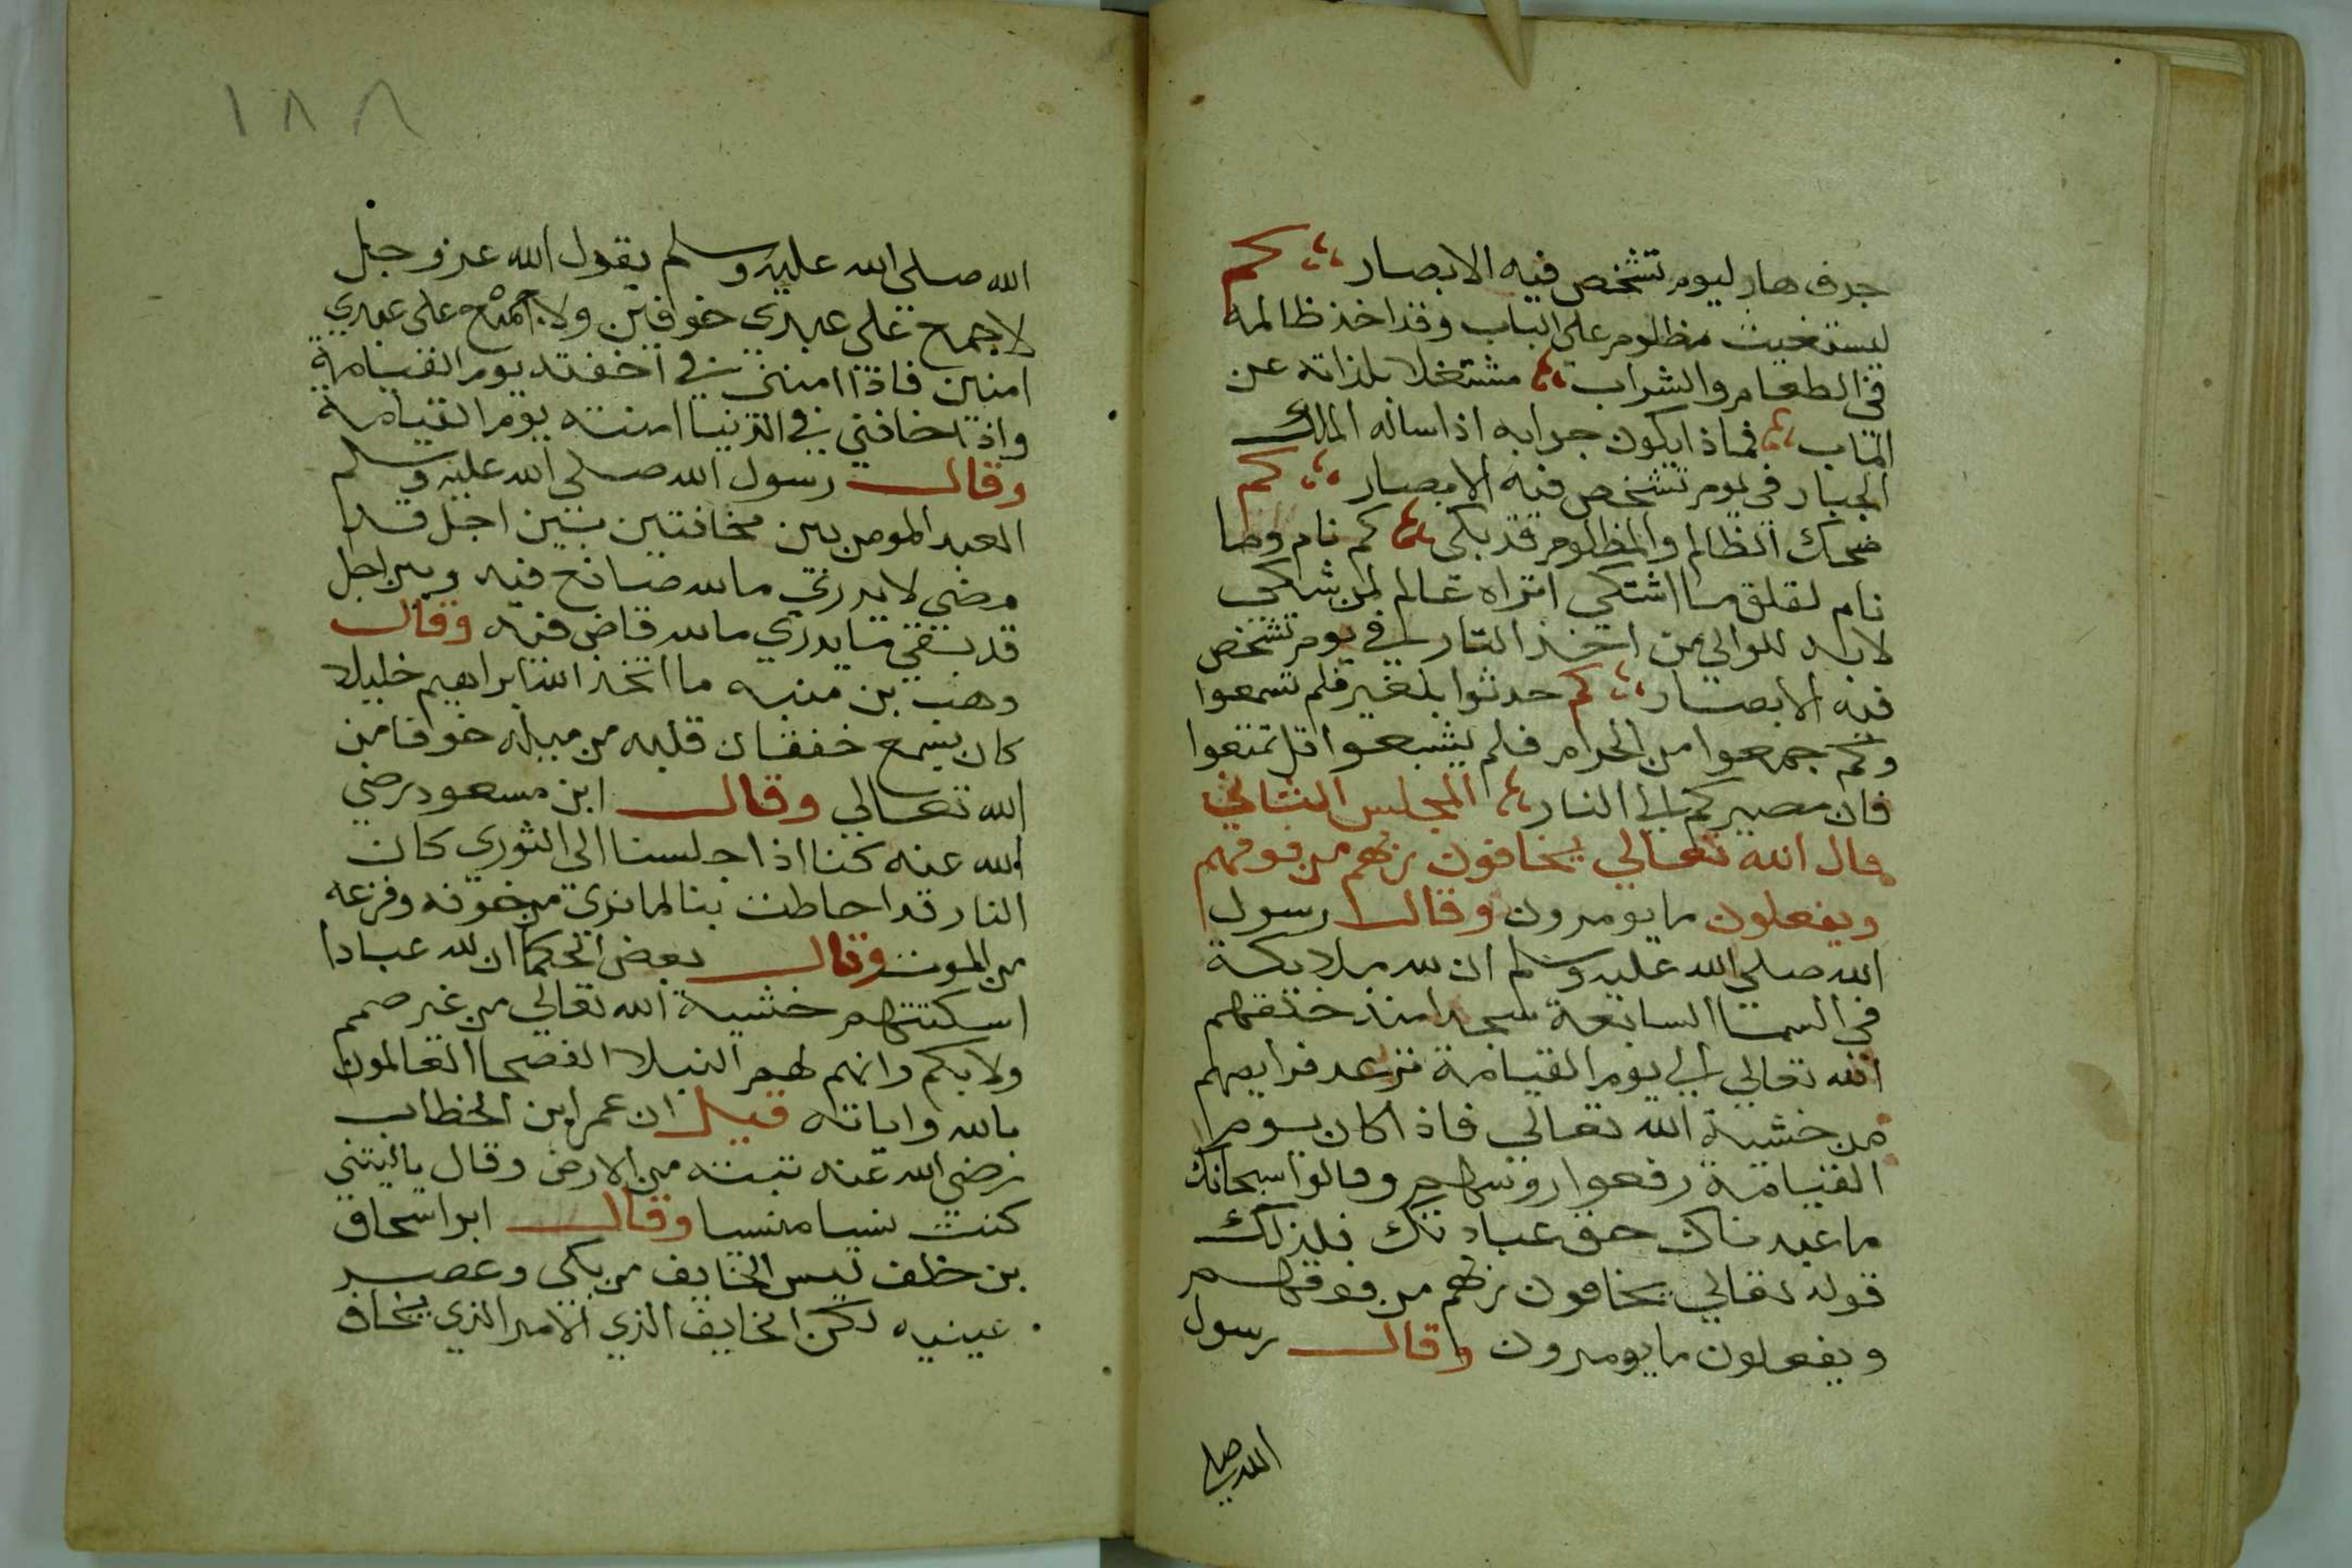 جرف هار ليوم تشخص فيه الابصار ؛ كم
ليستغيث مظلوم على الباب وقد اخذ ظالمه
في الطعام والشراب ؛ مشتغلا بلذاته عن
الماب ؛ فماذا يكون جوابه اذا ساله الملك
الجبار في يوم تشخص فيه الابصار ؛ كم
ضحك الظالم والمظلوم قد بكى ؛ كم نام وما
نام لقلق ما اشتكى اتراه عالم لمن شكى
لابد للوالي من اخذ الثار في يوم تشخص
فيه الابصار ؛ كم حدثوا بلغير فلم تسمعوا
وكم جمعوا من الحرام فلم يشبعوا قل تمتعوا
فان مصيركم الى النار ؛ المجلس الثاني
قال الله تعالي يخافون ربهم من فوقهم
ويفعلون ما يومرون وقال رسول
الله صلي الله عليه وسلم ان لله ملايكة
في السما السابعة سجدا منذ خلقهم
الله تعالي الي يوم القيامة ترعد فرايصهم
من خشية الله تعالي فاذا كان يوم
القيامة رفعوا روسهم وقالوا سبحانك
ما عبدناك حق عبادتك فلذلك
قوله تعالي يخافون ربهم من فوقهم
ويفعلون ما يومرون وقال رسول
الله صلى
١٨٨
الله صلى الله عليه وسلم يقول الله عز وجل
لا جمع على عبدي خوفين ولا اجمع على عبدي
امنين فاذا امنني في اخفته يوم القيامة
واذا خافني في الدنيا امنته يوم القيامة
وقال رسول الله صلى الله عليه وسلم
العبد المومن بين مخافتين بين اجل قد
مضى لا يدري ما لله صانع فيه وبين اجل
قد بقي ما يدري ما لله قاض فيه وقال
وهب بن منبه ما اتخذ الله ابراهيم خليلا
كان يسمع خفقان قلبه من ميله خوفا من
الله تعالي وقال ابن مسعود رضي
الله عنه كنا اذا جلسنا الى الثوري كان
النار قد احاطت بنا لما نرى من خوفه وفزعه
من الموت وقال بعض الحكما ان لله عبادا
اسكتتهم خشية الله تعالي من غير صمم
ولا بكم وانهم لهم النبلا الفصحا العالمون
بالله واياته قيل ان عمر ابن الخطاب
رضي الله عنه تبنه من الارض وقال ياليتني
كنت نسيا منسيا وقال ابو اسحاق
بن خلف ليس الخايف من بكى وعصر
عينيه لكن الخايف الذي الامر الذي يخاف